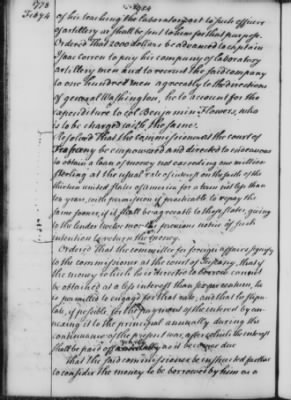 1778
Feby 4
of his teaching the laboratory art to such officers
of artillery as shall be sent to him for that purpose.
Ordered That 2000 dollars be advanced to captain
Isaac Coren to pay his company of laboratory
artillery men and to recruit the said company
to one hundred men agreeably to the directions
of general Washington, he to account for the
expenditure to Col Benjamin Flowers, who
is to be charged with the same.
Resolved That the Commissioner at the court of
Tuscany be empowered and directed to endeavour
to obtain a loan of money not exceeding one million
sterling at the usual rate of interest on the faith of the
thirteen united states of America for a term not less than
ten years, with permission if practicable to repay the
same sooner, if it shall be agreeable to these states, giving
to the lender twelve months previous notice of such
intention to return the money.
Ordered That the committee for foreign affairs signify
to the commissioner at the court of Tuscany, that if
the money which he is directed to borrow cannot
be obtained at a less interest than per annum, he
is permitted to engage for that rate, and that he stipu
late, if possible, for the payment of the interest by an-
nexing it to the principal annually during the
continuance of the present war, after which the interest
shall be paid off as it becomes due
That the said commissioner be instructed farther
to consider the money to be borrowed by him as a